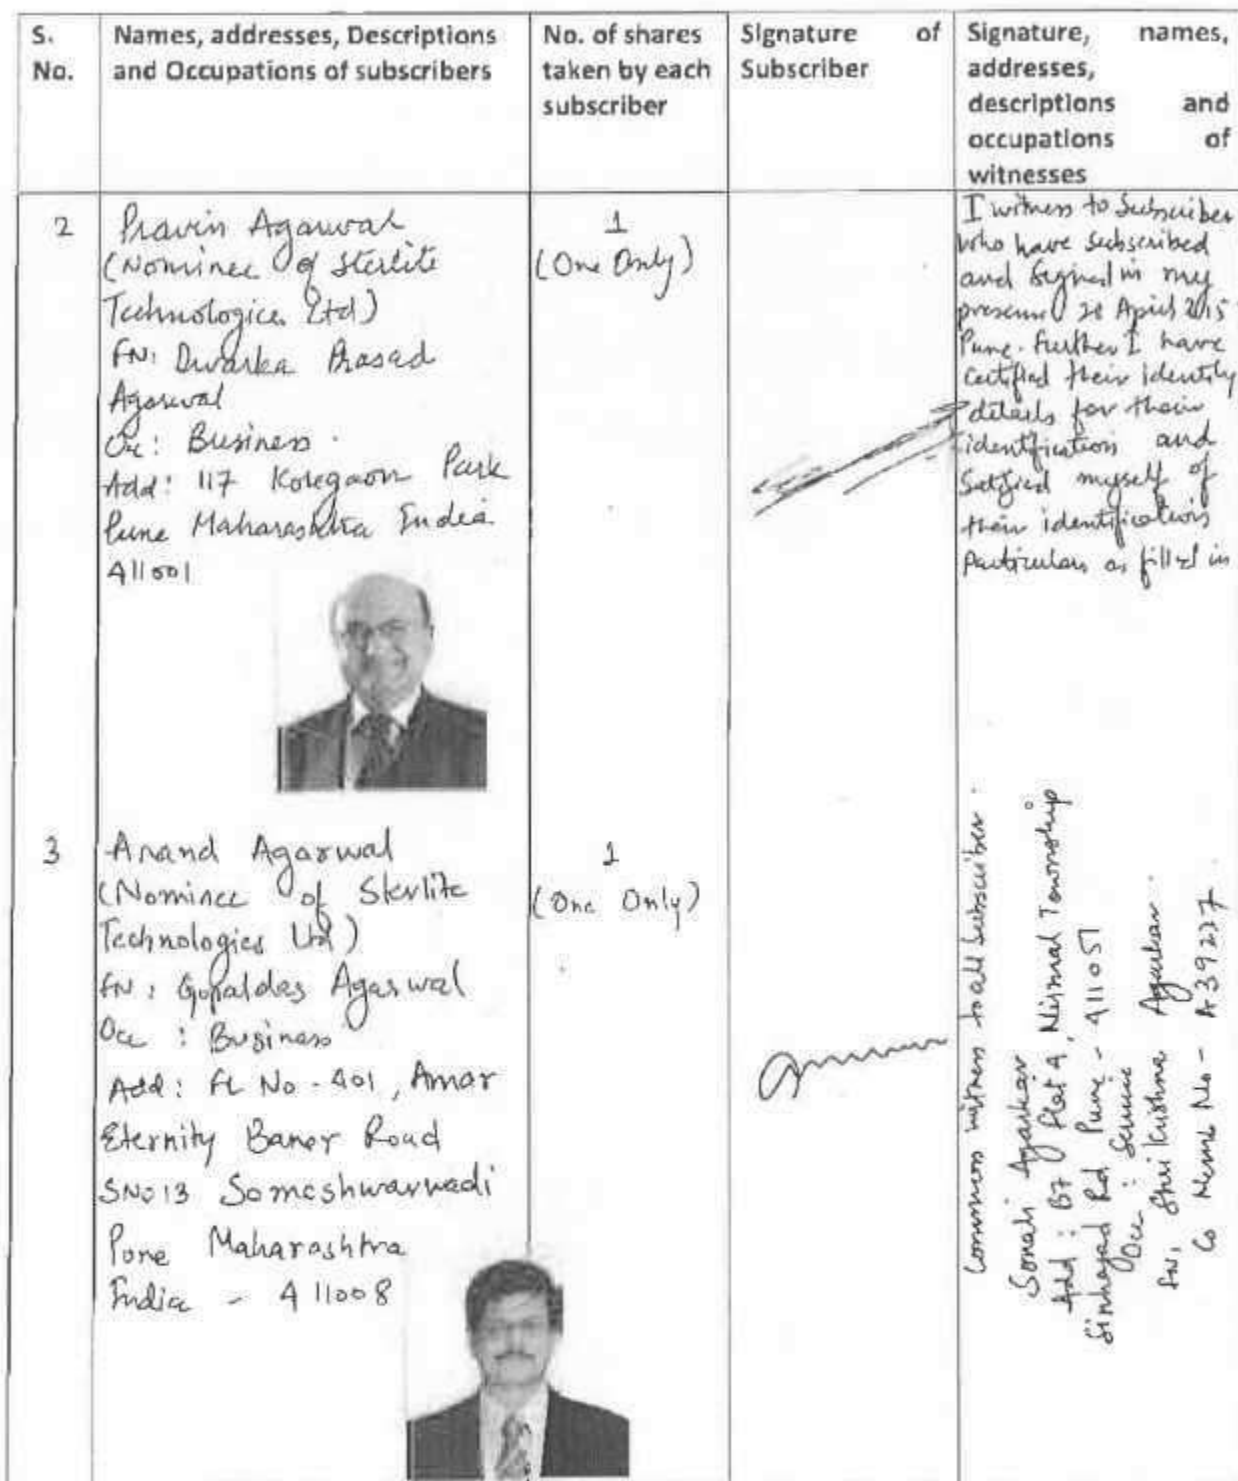 S. No.
Names, addresses, Descriptions
and Occupations of subscribers
No. of shares
taken by each
subscriber
Signature of
Subscriber
Signature, names,
addresses,
descriptions and
occupations of
witnesses
2
Pravin Agarwal
(Nominee of Sterlite
Technologies Ltd)
FN: Dwarka Prasad
Agarwal
Occ: Business
Add: 117 Koregaon Park
Pune Maharashtra India
411001
1
(One Only)
I witness to Subscriber
who have subscribed
and signed in my
presence 28 April 2015
Pune. Further I have
certified their identity
details for their
identification and
Satisfied myself of
their identifications
Particulars as filled in
3
Anand Agarwal
(Nominee of Sterlite
Technologies Ltd)
FN: Gopaldas Agarwal
Occ: Business
Add: FL No - 401, Amar
Eternity Baner Road
SNo 13 Someshwarwadi
Pune Maharashtra
India - 411008
1
(One Only)
Common witness to all Subscriber.
Sonali Agarkar
Add: B7 Flat 4, Nirmal Township
Sinhagad Rd Pune - 411051
Occ: Service
FN, Shri Krishna Agarkar
Co Memb No - A39277